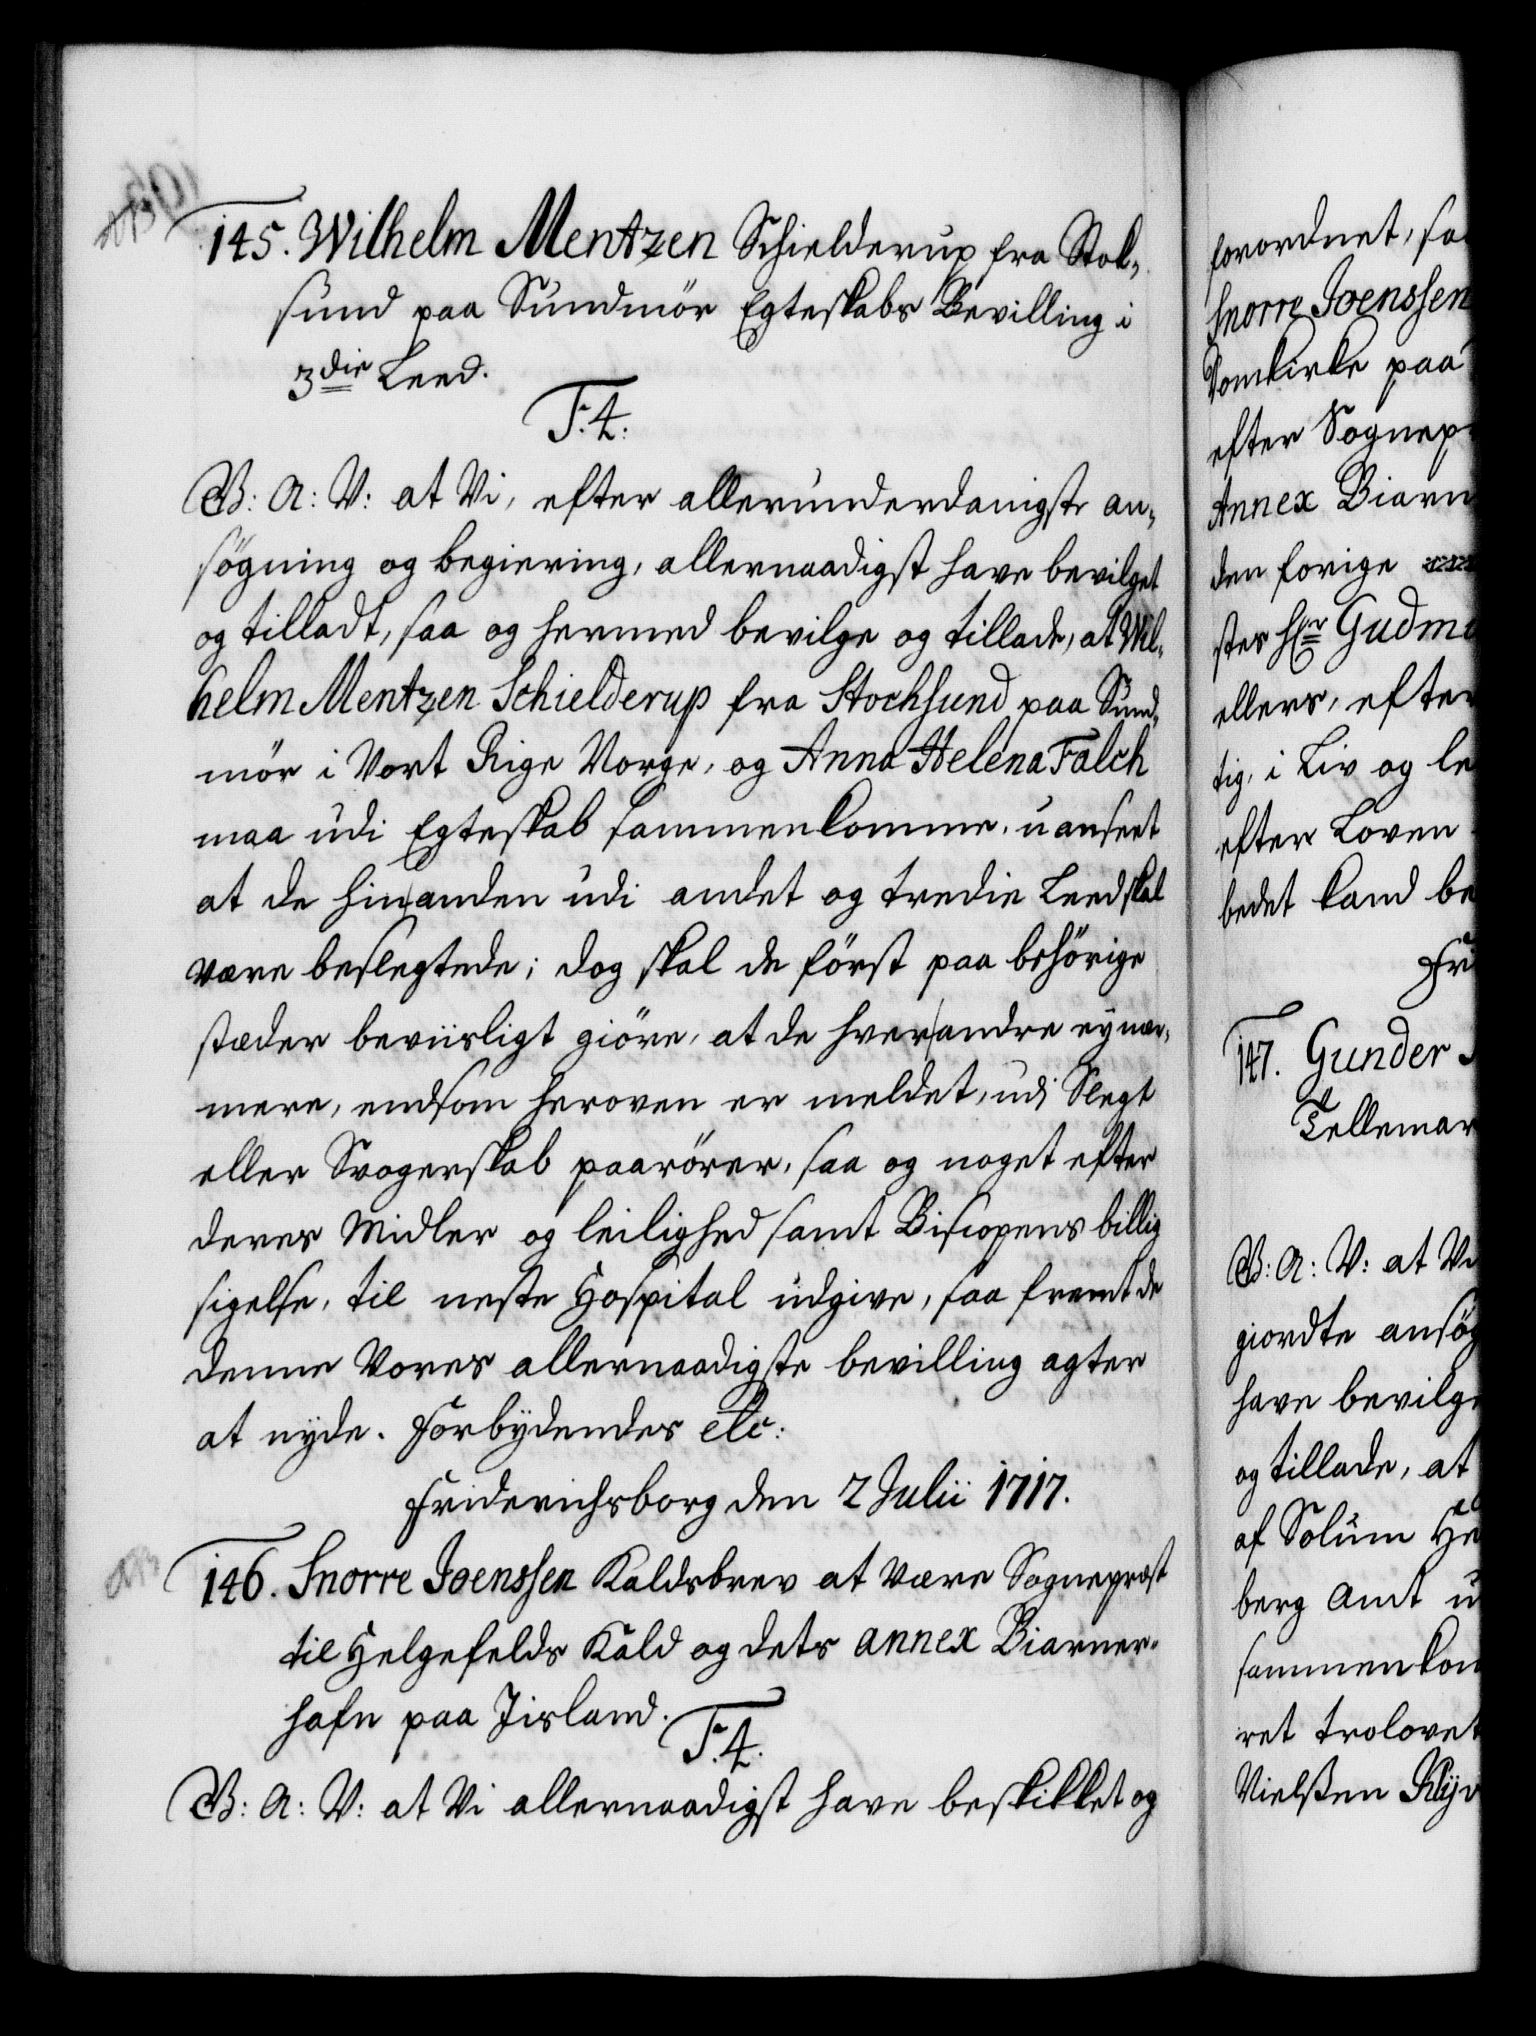 145. Wilhelm Mentzen Schielderup fra Stok-
sund paa Sundmör Egteskabs Bevilling i
3die Leed.
F. 4.
G: A: V: at Vi, efter allerunderdanigste an-
søgning og begiering, allernaadigst have bevilget
og tilladt, saa og hermed bevilge og tillade, at Wil-
helm Mentzen Schielderup fra Stochsund paa Sund-
mör i Vort Rige Norge, og Anna Helena Falch
maa udi Egteskab sammenkomme, uanseet
at de hinanden udi andet og tredie Leed skal
være beslegtede; dog skal de först paa behörige
stæder beviisligt giöre, at de hverandre ey nær-
mere, end som heroven er meldet, udi Slegt
eller Svogerskab paarörer, saa og noget efter
deres Midler og leilighed samt Biscopens billig
sigelse, til neste Hospital udgive, saa fremt de
denne Vores allernaadigste bevilling agter
at nyde. Forbydendes etc:
Friderichsborg den 2 Julii 1717.
146. Snorre Joenssen Kaldsbrev at være Sognepræst
til Helgefelds Kald og dets annex Biarner-
hafn paa Iisland.
F. 4.
G: A: V: at Vi allernaadigst have beskikket og
forordnet, saa
Snorre Joenssen
Domkirke paa
efter Sognep
Annex Biarn
den forige
ster Hr Gudm
ellers, efter
tig, i Liv og le
efter Loven
bedet kand be
Fri
147. Gunder
Tellemar
G: A: V: at Vi
giordte ansøg
have bevilge
og tillade, at
af Solum He
berg Amt u
sammenkom
ret trolovet
Nielssen